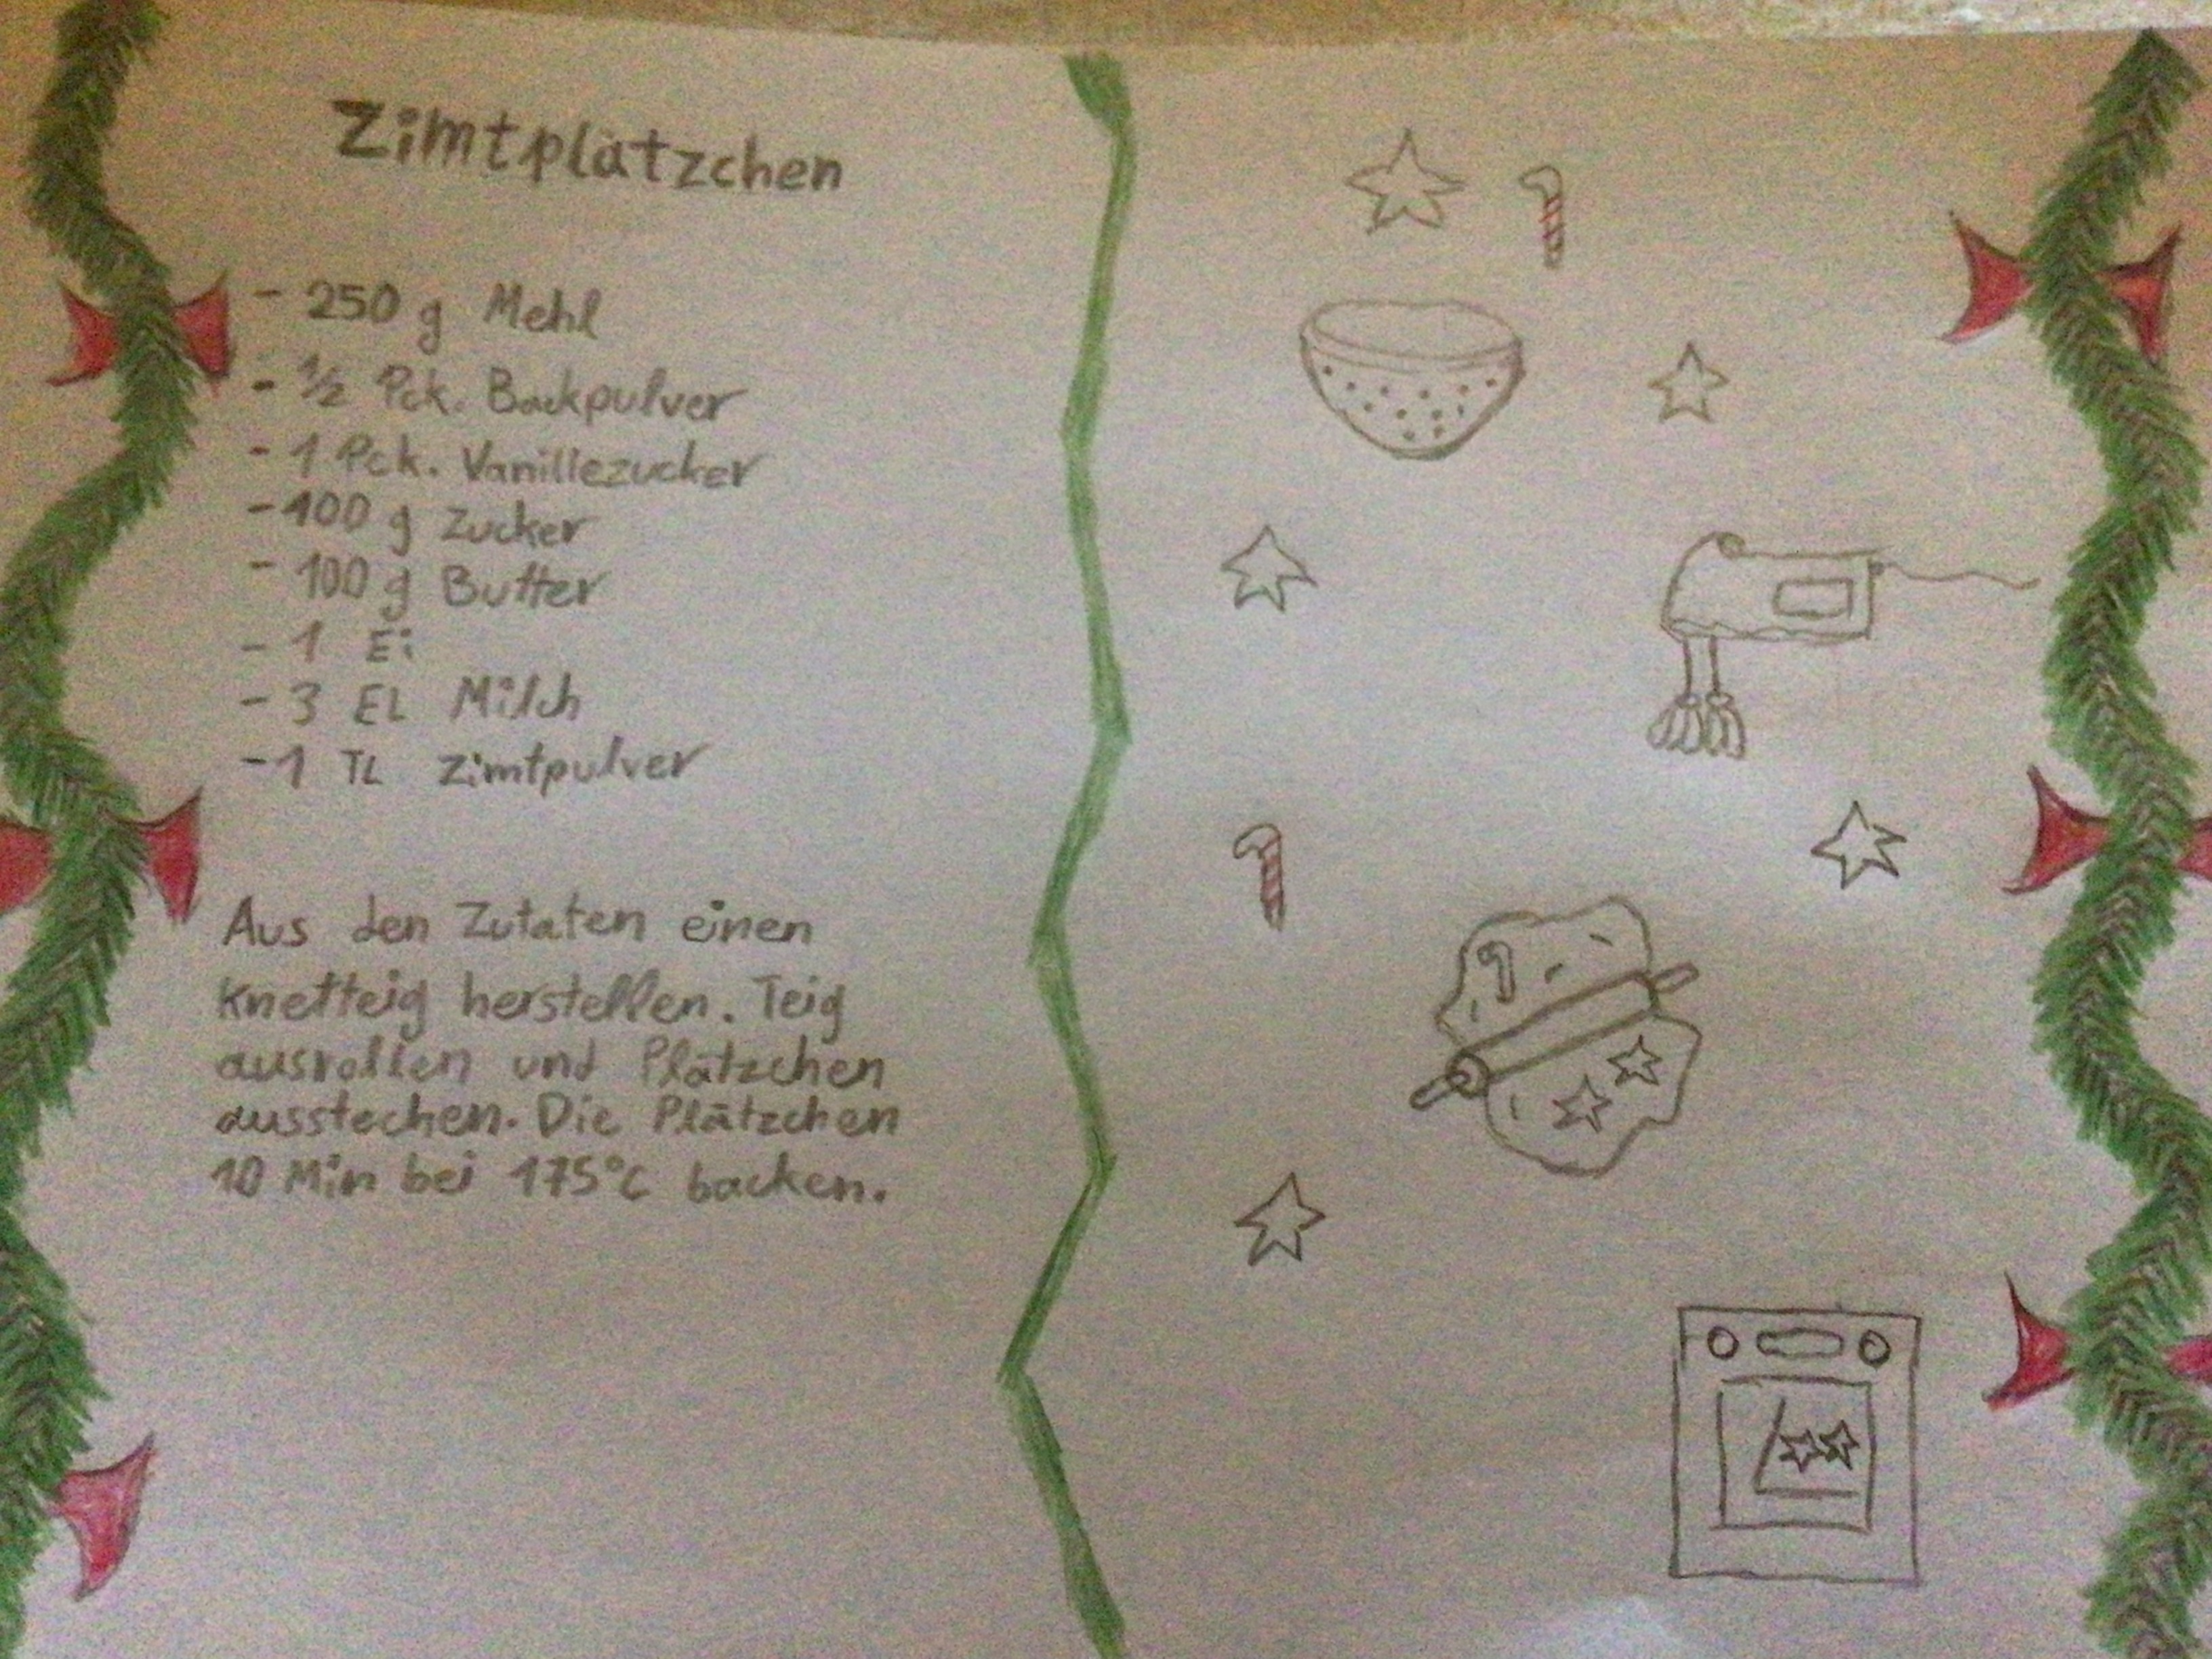 Zimtplätzchen
- 250 g Mehl
- ½ Pck. Backpulver
- 1 Pck. Vanillezucker
- 100 g Zucker
- 100 g Butter
- 1 Ei
- 3 EL Milch
- 1 TL Zimtpulver
Aus den Zutaten einen
Knetteig herstellen. Teig
ausrollen und Plätzchen
ausstechen. Die Plätzchen
10 Min bei 175°C backen.